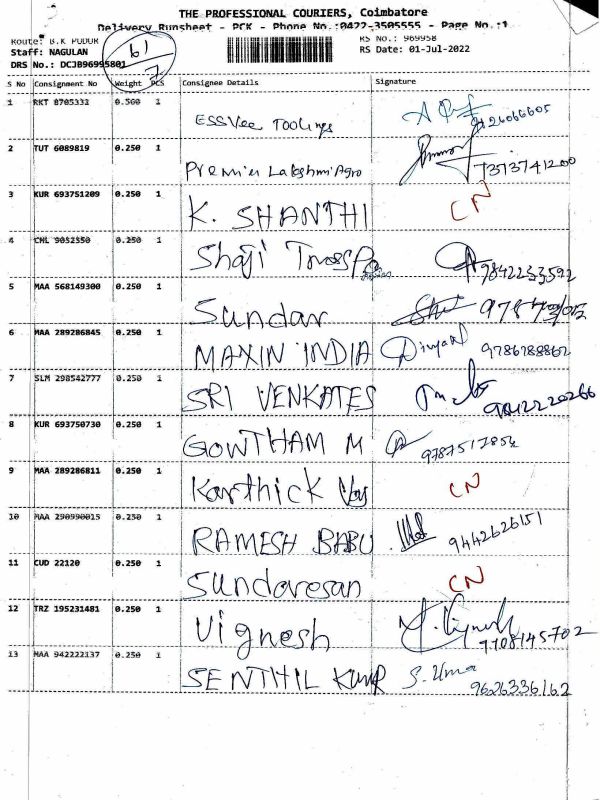 THE PROFESSIONAL COURIERS, Coimbatore
Delivery Runsheet - PCK - Phone No.:0422-3505555 - Page No.:1
Route: B.K PUDUR RS No.: 969958
Staff: NAGULAN RS Date: 01-Jul-2022
DRS No.: DCJB96995801
61
7
S No Consignment No Weight PCS Consignee Details Signature
1 RKT 8705333 0.500 1 ESSVee TOOLings 9126066605
2 TUT 6089819 0.250 1 Premier LakshmiAgro 7373741200
3 KUR 693751209 0.250 1 K. SHANTHI CN
4 CHL 9052350 0.250 1 Shaji 9842233592
5 MAA 568149300 0.250 1 Sundar
6 MAA 289286845 0.250 1 MAXIN INDIA 9786788862
7 SLM 298542777 0.250 1 SRI VENKATES 9042220266
8 KUR 693750730 0.250 1 GOWTHAM M
9 MAA 289286811 0.250 1 Karthick CN
10 MAA 290990015 0.250 1 RAMESH BABU 9442626151
11 CUD 22120 0.250 1 Sundaresan CN
12 TRZ 195231481 0.250 1 Vignesh 7708145702
13 MAA 942222137 0.250 1 SENTHIL KUMR S. Uma 9626336162